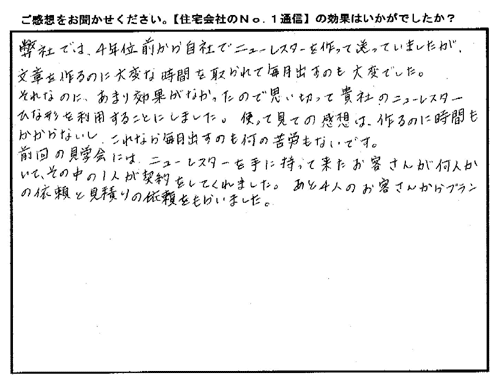 ご感想をお聞かせください。【住宅会社のＮｏ．１通信】の効果はいかがでしたか？
弊社では、4年位前から自社でニューレスターを作って送っていましたが、
文章を作るのに大変な時間を取られて毎月出すのも大変でした。
それなのに、あまり効果がなかったので思い切って貴社のニューレスター
ひな形を利用することにしました。使って見ての感想は、作るのに時間も
かからないし、これなら毎月出すのも何の苦労もないです。
前回の見学会には、ニューレスターを手に持って来たお客さんが何人か
いて、その中の1人が契約をしてくれました。あと4人のお客さんからプラン
の依頼と見積りの依頼をもらいました。